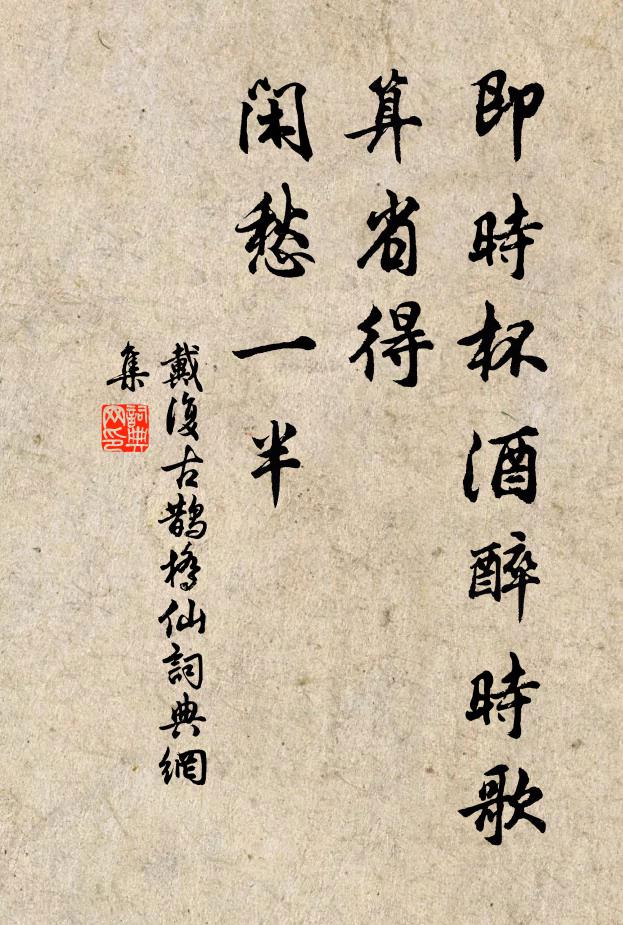 即時杯酒醉時歌
算省得
閑愁一半
戴復古鵲橋仙詞典網
集
詞典网印